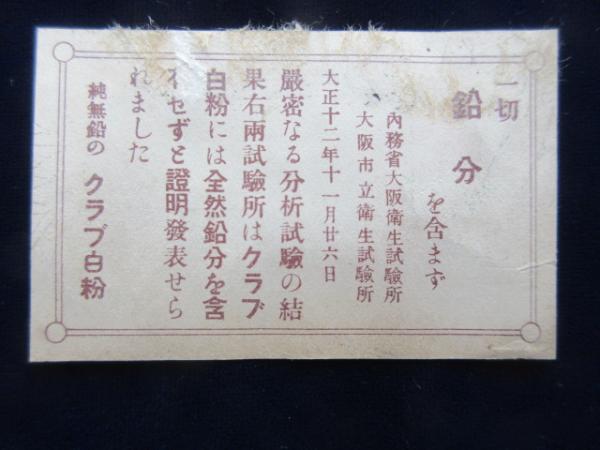 一切
鉛分
を含まず
内務省大阪衛生試驗所
大阪市立衛生試驗所
大正十二年十一月廿六日
嚴密なる分析試驗の結
果右兩試驗所はクラブ
白粉には全然鉛分を含
有せずと證明發表せら
れました
純無鉛の クラブ白粉